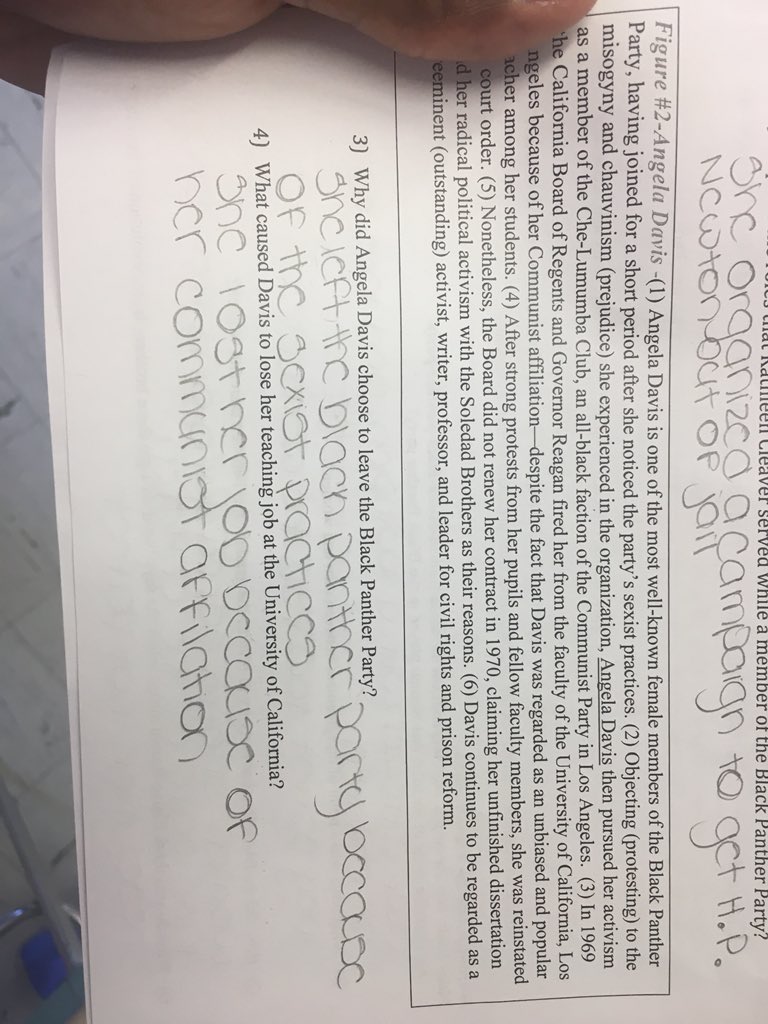 that Kathleen Cleaver served while a member of the Black Panther Party?
She organized a campaign to get H.P.
Newton out of jail
Figure #2-Angela Davis -(1) Angela Davis is one of the most well-known female members of the Black Panther
Party, having joined for a short period after she noticed the party's sexist practices. (2) Objecting (protesting) to the
misogyny and chauvinism (prejudice) she experienced in the organization, Angela Davis then pursued her activism
as a member of the Che-Lumumba Club, an all-black faction of the Communist Party in Los Angeles. (3) In 1969
the California Board of Regents and Governor Reagan fired her from the faculty of the University of California, Los
ngeles because of her Communist affiliation—despite the fact that Davis was regarded as an unbiased and popular
acher among her students. (4) After strong protests from her pupils and fellow faculty members, she was reinstated
court order. (5) Nonetheless, the Board did not renew her contract in 1970, claiming her unfinished dissertation
d her radical political activism with the Soledad Brothers as their reasons. (6) Davis continues to be regarded as a
eeminent (outstanding) activist, writer, professor, and leader for civil rights and prison reform.
3) Why did Angela Davis choose to leave the Black Panther Party?
She left the black panther party because
of the sexist practices
4) What caused Davis to lose her teaching job at the University of California?
She lost her job because of
her communist affilation